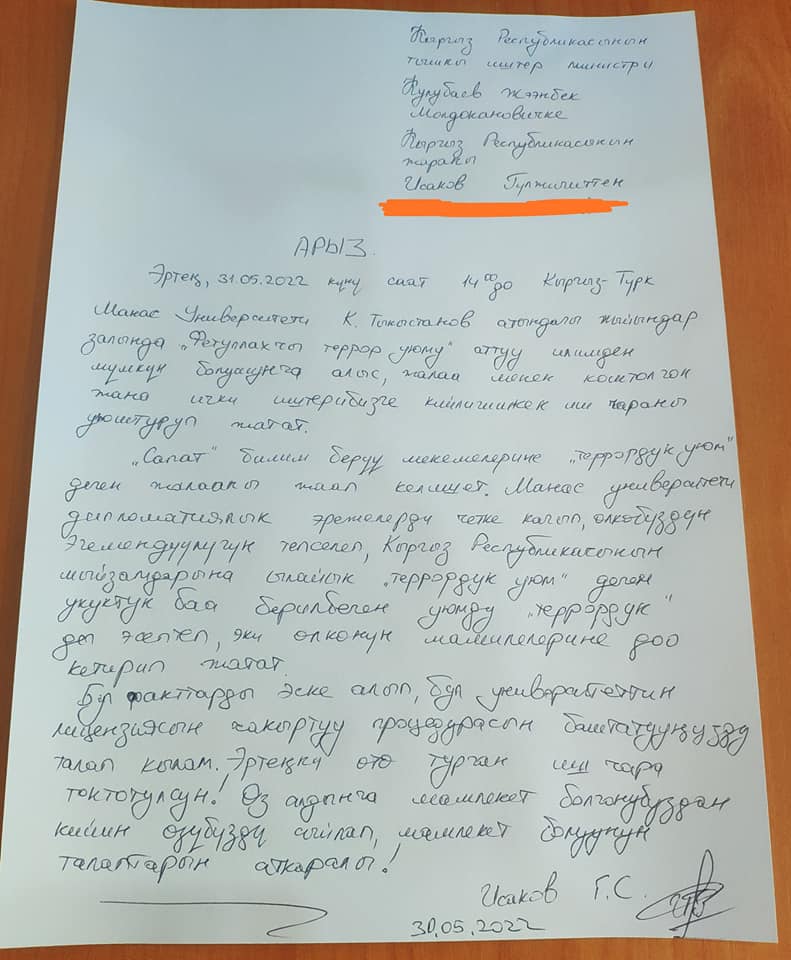 Кыргыз Республикасынын
тышкы иштер министри
Кулубаев Жээнбек
Молдокановичке
Кыргыз Республикасынын
жараны
Исаков Гүлжигиттен
АРЫЗ.
Эртең, 31.05.2022 күнү саат 14⁰⁰дө Кыргыз-Түрк
Манас Университети К. Тыныстанов атындагы жыйындар
залында „Фетуллахчы террор уюму" аттуу илимден
мүмкүн болушунча алыс, жалаа менен коштолгон
жана ички иштерибизге кийлигишкен иш чараны
уюштуруп жатат.
„Сапат" билим берүү мекемелерине „террордук уюм"
деген жалааны жаап келишет. Манас университети
дипломатиялык эрежелерди четке кагып, өлкөбүздүн
Эгемендүүлүгүн тепселеп, Кыргыз Республикасынын
мыйзамдарына ылайык „террордук уюм" деген
укуктук баа берилбеген уюмду „террордук"
деп эсептеп, эки өлкөнүн мамилелерине доо
кетирип жатат.
Бул фактыларды эске алып, бул университеттин
лицензиясын чакыртуу процедурасын баштатууңузду
талап кылам. Эртеңки өтө турган иш чара
токтотулсун! Өз алдынча мамлекет болгонубуздан
кийин өзүбүздү сыйлап, мамлекет болуунун
талаптарын аткаралы!
Исаков Г.С.
30.05.2022